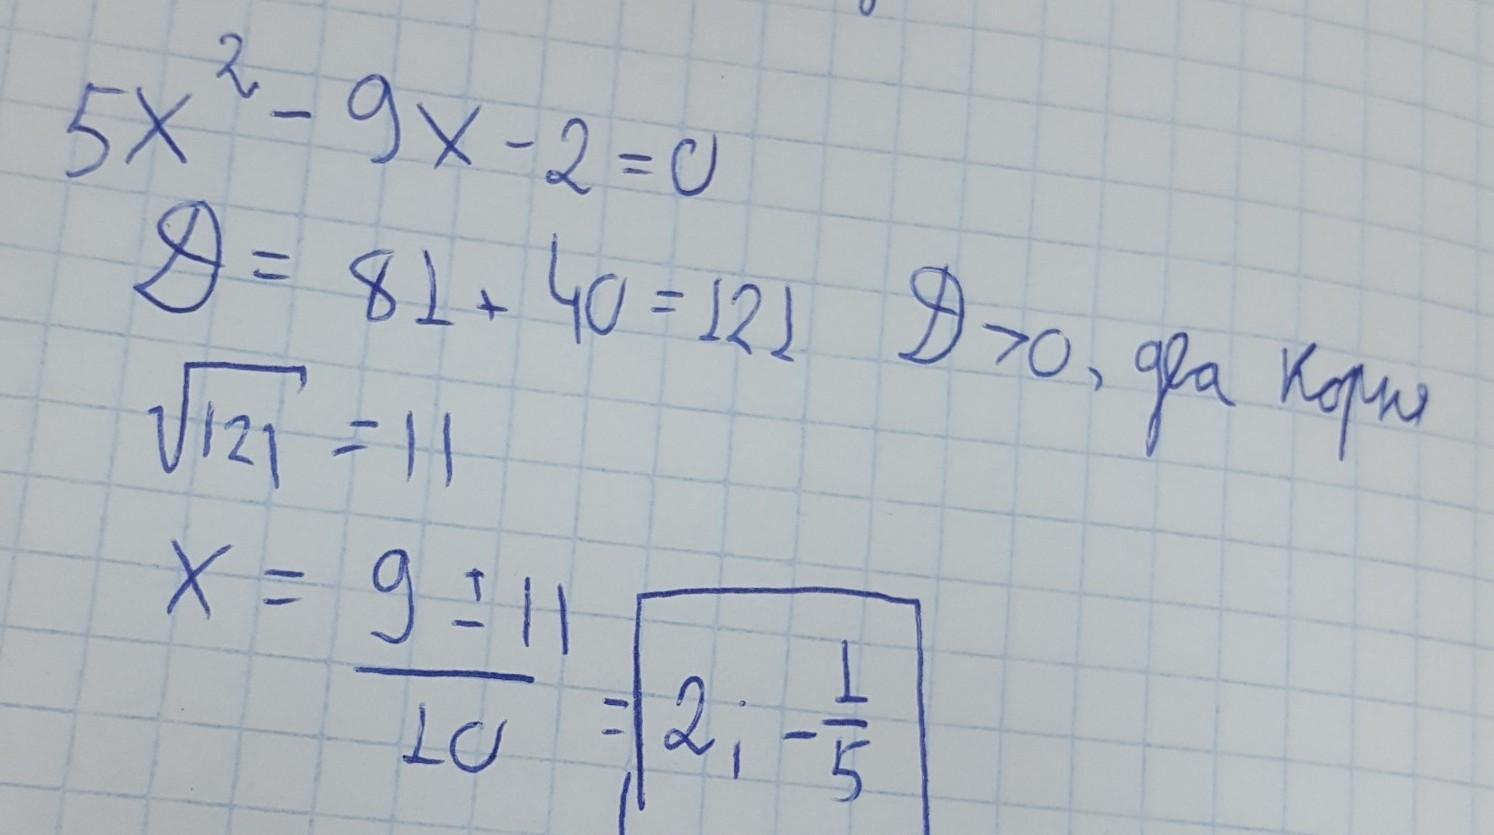 5x² - 9x - 2 = 0
D = 81 + 40 = 121 D > 0, два корня
√121 = 11
x = (9 ± 11)/10 = 2; -1/5